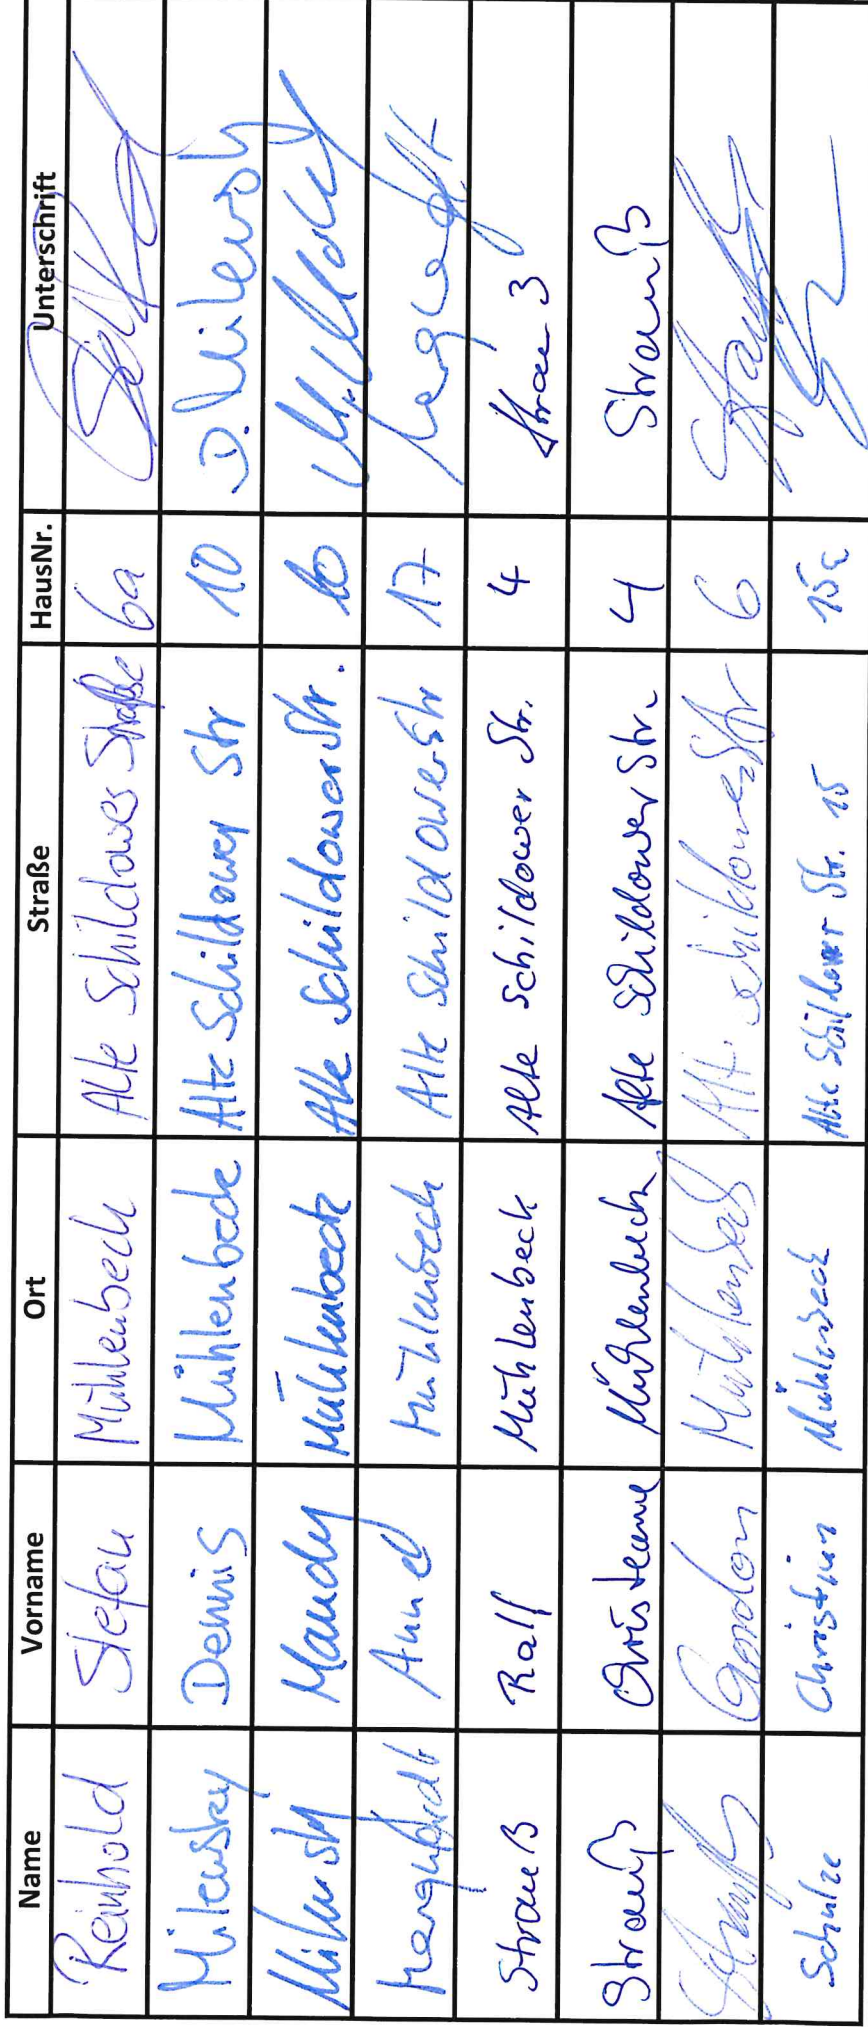 Name Vorname Ort Straße HausNr. Unterschrift
Reinhold Stefan Mühlenbeck Alte Schildower Straße 6a
Milewsky Dennis Mühlenbeck Alte Schildower Str 10 D. Milewsky
Milewsky Mandy Mühlenbeck Alte Schildower Str. 10
Marquardt Mühlenbeck Alte Schildower Str 17
Strauß Ralf Mühlenbeck Alte Schildower Str. 4 Strauß
Strauß Mühlenbeck Alte Schildower Str. 4 Strauß
Gordon Mühlenbeck Alt. Schildower Str 6
Schulze Christian Mühlenbeck Alte Schildower Str. 15